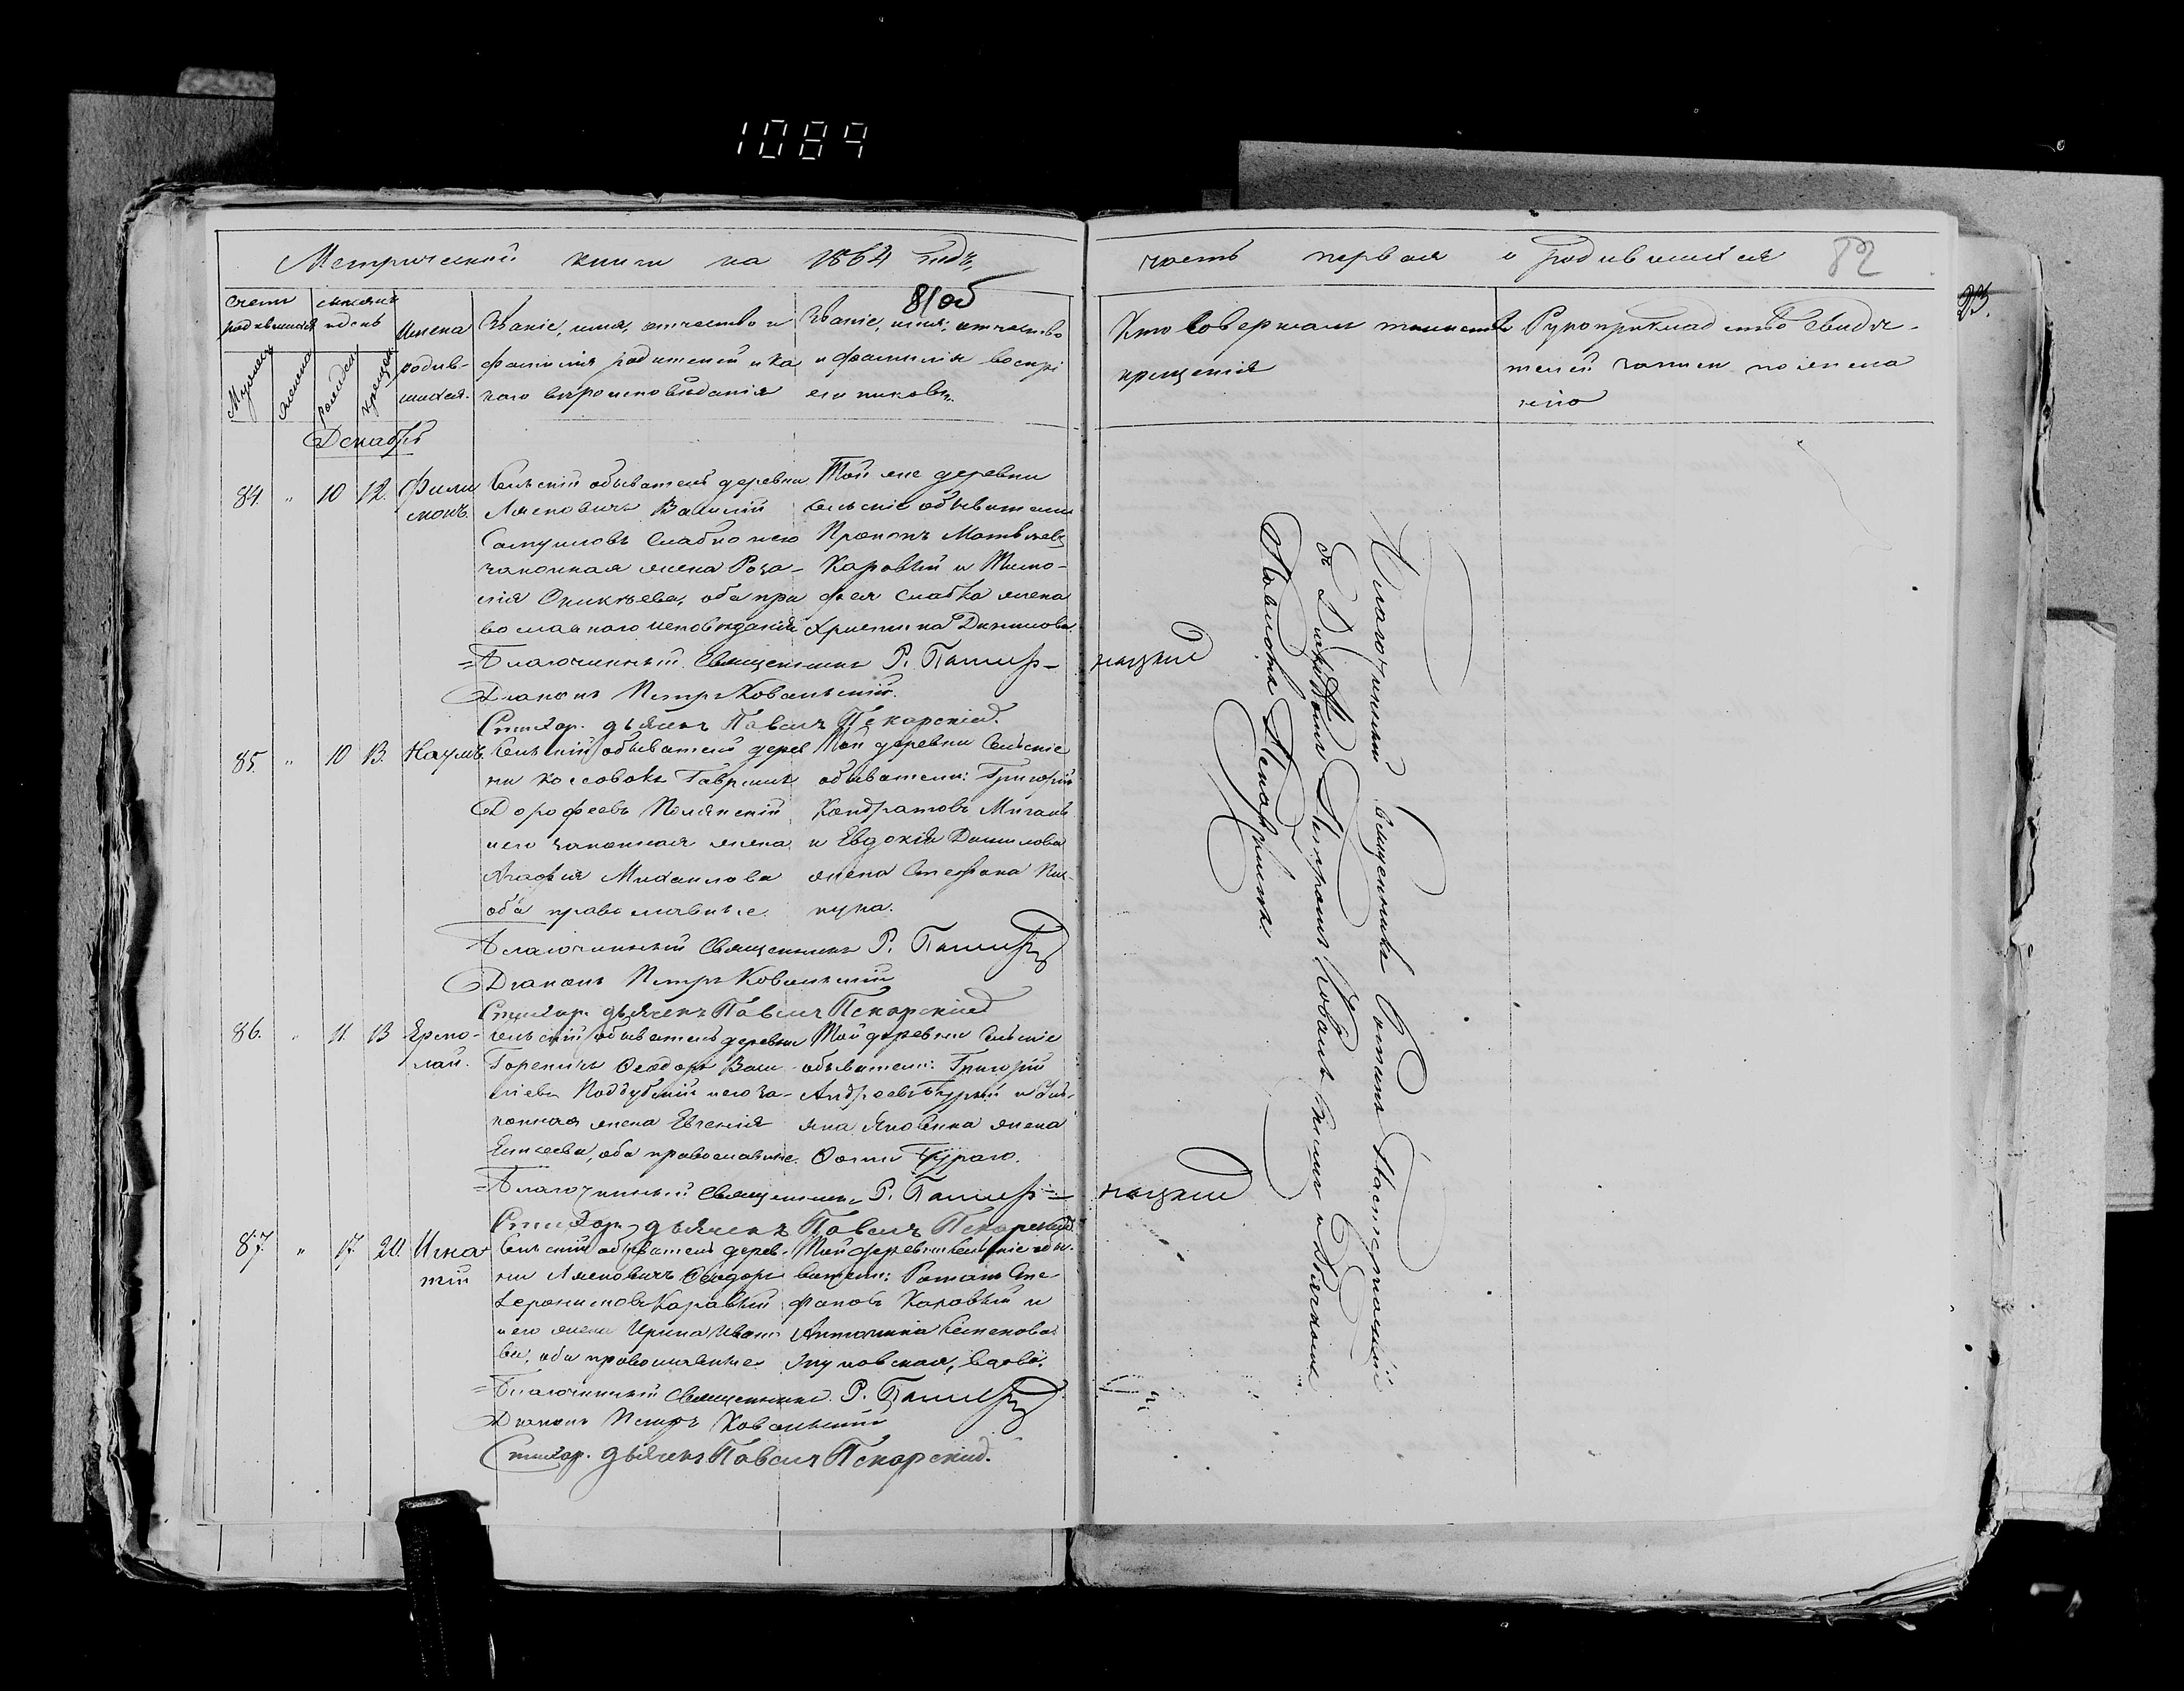 1089
Метрической книги на 1864 годъ,
часть первая о родившихся
82
81об
23.
Счетъ родившихся
мѣсяцъ и день
Мужеска
Женска
рожденія
крещенія
Имена родив-
шихся.
Званіе, имя, отчество и
фамилія родителей и ка
кого вѣроисповѣданія
Званіе, имя, отчество
и фамилія воспрі
емниковъ.
Кто совершалъ таинство
крещенія
Рукоприкладство свидѣ-
телей записи по жела
нію
Декабрь
84. " 10 12. Фили
монъ.
Сельскій обыватель деревни
Ляховичъ Василій
Самуиловъ Слабко и его
законная жена Роза-
лія Оникѣева, оба пра
вославнаго исповѣданія
Той же деревни
сельскіе обыватели
Прокопъ Матвѣевъ
Каровый и Тимо-
фея Слабка жена
Христина Данилова.
Благочинный Священникъ Р. Пашер-
ницкій
Діаконъ Петръ Ковальскій.
Стихар. дьячекъ Павелъ Пекарскій.
85. " 10 13. Наумъ.
Сельскій обыватель дерев
ни Гавріилъ
Дорофеевъ
и его законная жена
Агафія Михаилова
оба православные.
Той деревни Сельскіе
обыватели: Григорій
Кондратовъ
и Евдокія Данилова
жена Стефана
Благочинный Священникъ Р.
Діаконъ Петръ Ковальскій
Стихар. дьячекъ Павелъ Пекарскій
86. " 11. 13 Ермо-
лай.
Сельскій обыватель деревни
Горечичъ Ѳеодоръ Васи
ліевъ Поддубный и его за-
конная жена Евгенія
Елисеева, оба православные.
Той деревни Сельскіе
обыватели: Григорій
Андреевъ Бурый и
Яковлева жена
Благочинный Священникъ Р. Пашер-
ницкій
Стихар. дьячекъ Павелъ Пекарскій.
87. " 17. 20. Игна
тій
Сельскій обыватель дерев-
ни Ляховичъ Ѳеодоръ
Іеронимовъ Каравый
и его жена Ирина Ивано
ва, оба православные
Той деревни Сельскіе обы-
ватели: Романъ Сте
фановъ Каровый и
Антонина Семенова
вдова.
Благочинный Священникъ. Р.
Діаконъ Петръ Ковальскій
Стихар. дьячекъ Павелъ Пекарскій.
Благочинный Священникъ Романъ
съ Діакономъ Петромъ Ковальскимъ и Дьячкомъ
Павломъ Пекарскимъ.